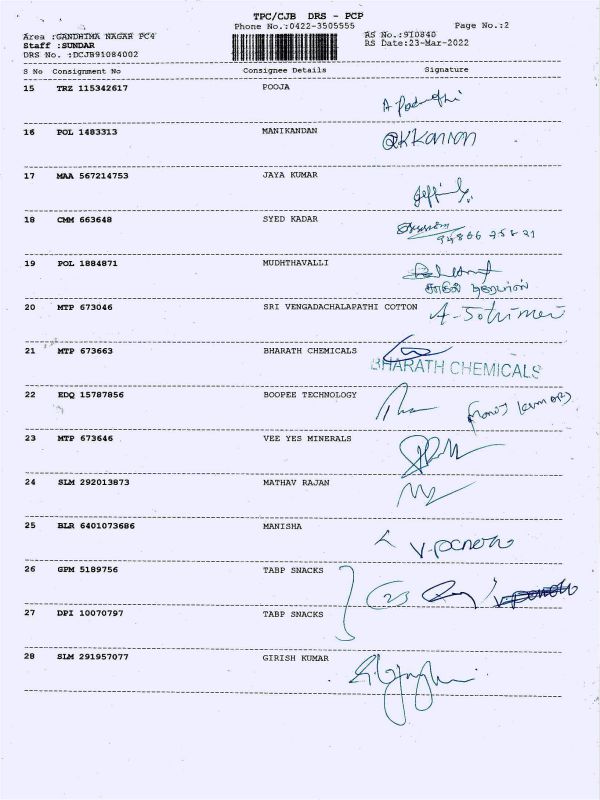 TPC/CJB DRS - PCP
Phone No.:0422-3505555 Page No.:2
Area :GANDHIMA NAGAR PC4 RS No.:9I0840
Staff :SUNDAR RS Date:23-Mar-2022
DRS No. :DCJB91084002
S No Consignment No Consignee Details Signature
15 TRZ 115342617 POOJA
16 POL 1483313 MANIKANDAN
17 MAA 567214753 JAYA KUMAR
18 CMM 663648 SYED KADAR
19 POL 1884871 MUDHTHAVALLI
20 MTP 673046 SRI VENGADACHALAPATHI COTTON
21 MTP 673663 BHARATH CHEMICALS
BHARATH CHEMICALS
22 EDQ 15787856 BOOPEE TECHNOLOGY
23 MTP 673646 VEE YES MINERALS
24 SLM 292013873 MATHAV RAJAN
25 BLR 6401073686 MANISHA
26 GPM 5189756 TABP SNACKS
27 DPI 10070797 TABP SNACKS
28 SLM 291957077 GIRISH KUMAR